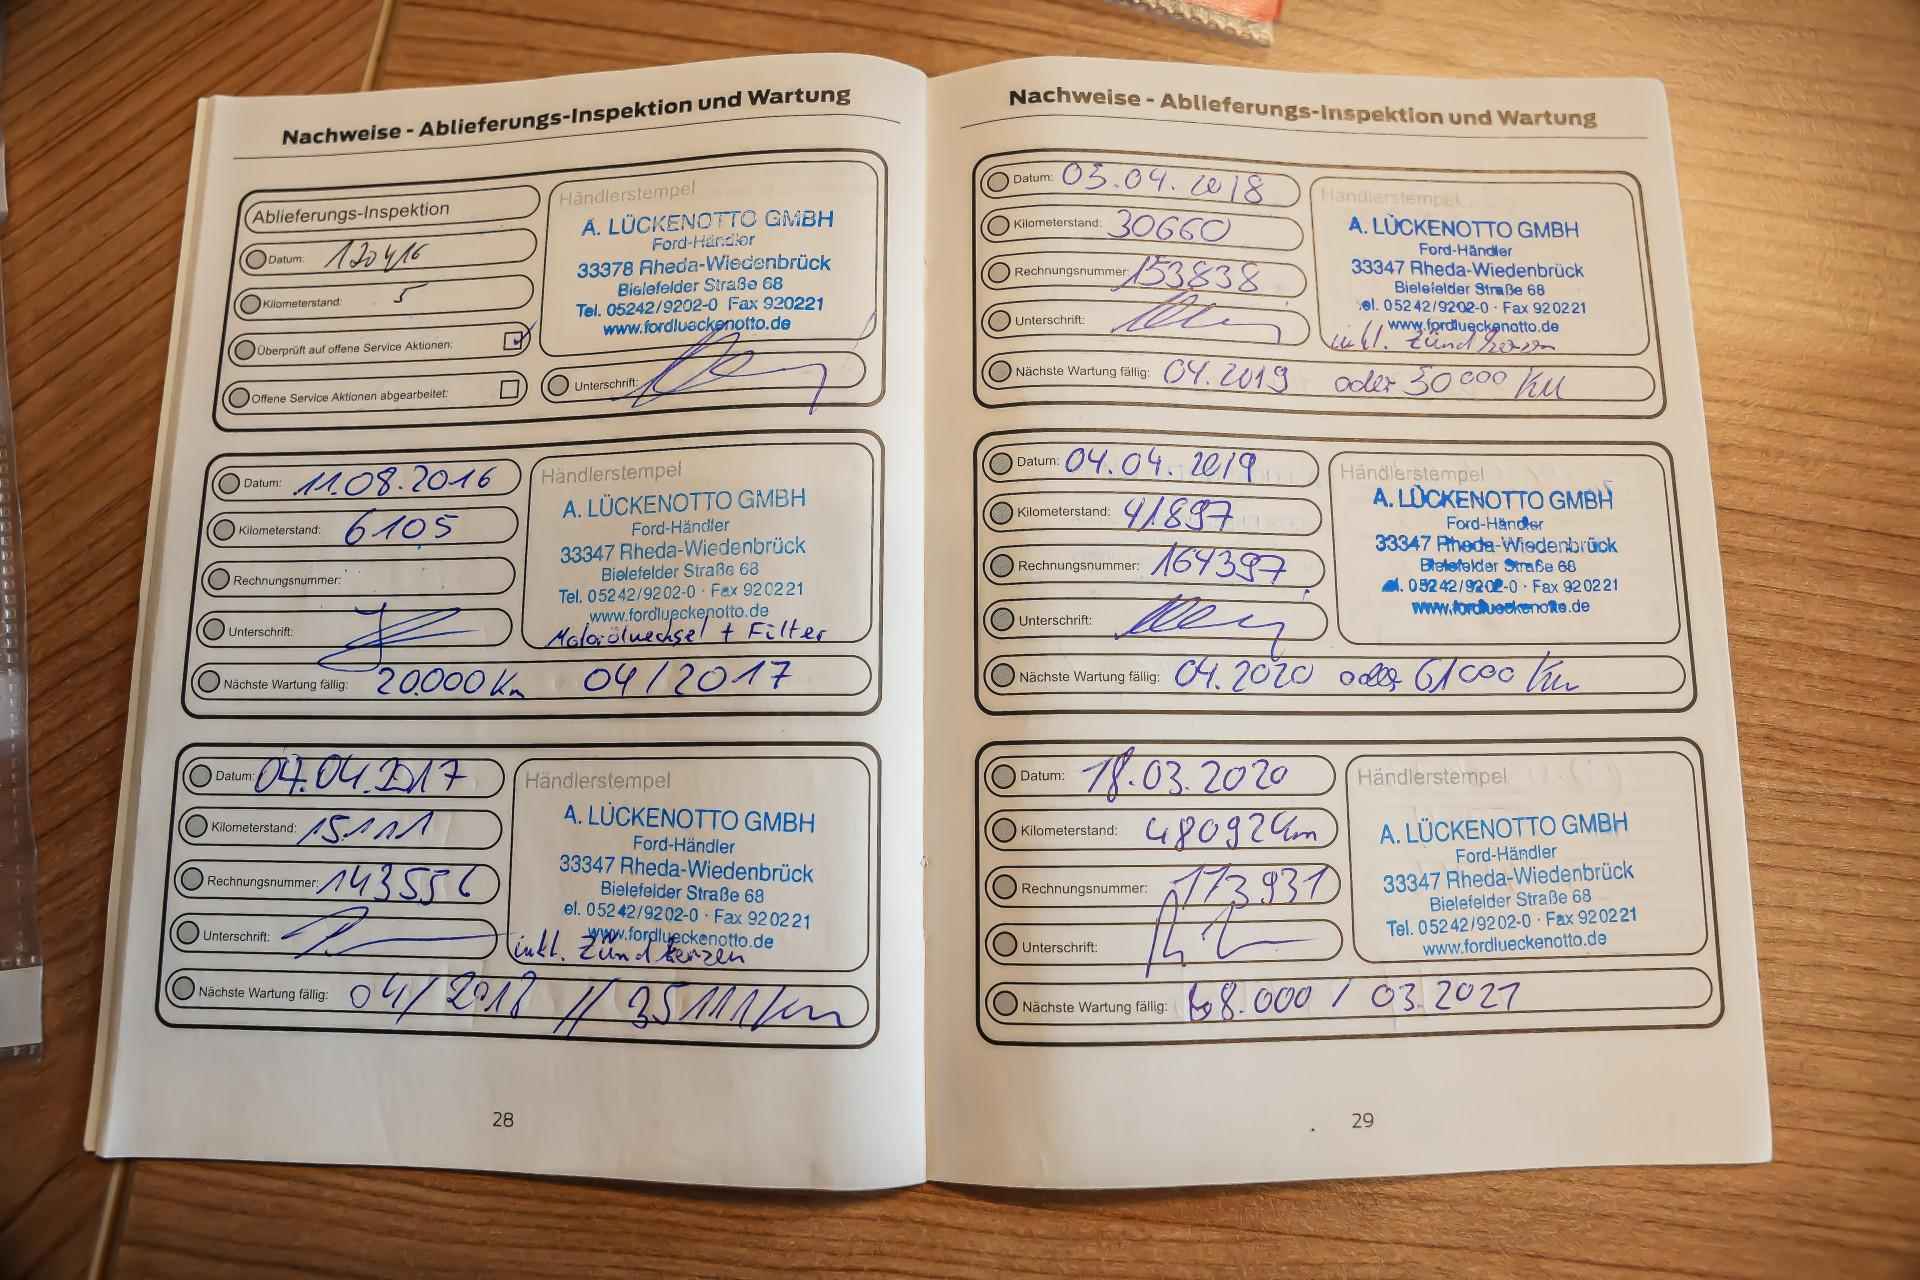 Nachweise - Ablieferungs-Inspektion und Wartung
Ablieferungs-Inspektion
Datum: 120416
Kilometerstand: 5
Überprüft auf offene Service Aktionen:
Offene Service Aktionen abgearbeitet:
Händlerstempel
A. LÜCKENOTTO GMBH
Ford-Händler
33378 Rheda-Wiedenbrück
Bielefelder Straße 68
Tel. 05242/9202-0 Fax 920221
www.fordlueckenotto.de
Unterschrift:
Datum: 11.08.2016
Kilometerstand: 6105
Rechnungsnummer:
Unterschrift:
Händlerstempel
A. LÜCKENOTTO GMBH
Ford-Händler
33347 Rheda-Wiedenbrück
Bielefelder Straße 68
Tel. 05242/9202-0 · Fax 920221
www.fordlueckenotto.de
Motorölwechsel + Filter
Nächste Wartung fällig: 20.000 Km 04/2017
Datum: 04.04.2017
Kilometerstand: 15.111
Rechnungsnummer: 143556
Unterschrift:
Händlerstempel
A. LÜCKENOTTO GMBH
Ford-Händler
33347 Rheda-Wiedenbrück
Bielefelder Straße 68
el. 05242/9202-0 · Fax 920221
www.fordlueckenotto.de
inkl. Zündkerzen
Nächste Wartung fällig: 04/2018 // 35111/km
28
Nachweise - Ablieferungs-Inspektion und Wartung
Datum: 03.04.2018
Kilometerstand: 30660
Rechnungsnummer: 153838
Unterschrift:
Händlerstempel
A. LÜCKENOTTO GMBH
Ford-Händler
33347 Rheda-Wiedenbrück
Bielefelder Straße 68
el. 05242/9202-0 · Fax 920221
www.fordlueckenotto.de
inkl. Zündkerzen
Nächste Wartung fällig: 04.2019 oder 50000 Km
Datum: 04.04.2019
Kilometerstand: 41897
Rechnungsnummer: 164397
Unterschrift:
Händlerstempel
A. LÜCKENOTTO GMBH
Ford-Händler
33347 Rheda-Wiedenbrück
Bielefelder Straße 68
el. 05242/9202-0 · Fax 920221
www.fordlueckenotto.de
Nächste Wartung fällig: 04.2020 oder 61000 Km
Datum: 18.03.2020
Kilometerstand: 48092 km
Rechnungsnummer: 173931
Unterschrift:
Händlerstempel
A. LÜCKENOTTO GMBH
Ford-Händler
33347 Rheda-Wiedenbrück
Bielefelder Straße 68
Tel. 05242/9202-0 · Fax 920221
www.fordlueckenotto.de
Nächste Wartung fällig: 68.000 / 03.2021
29